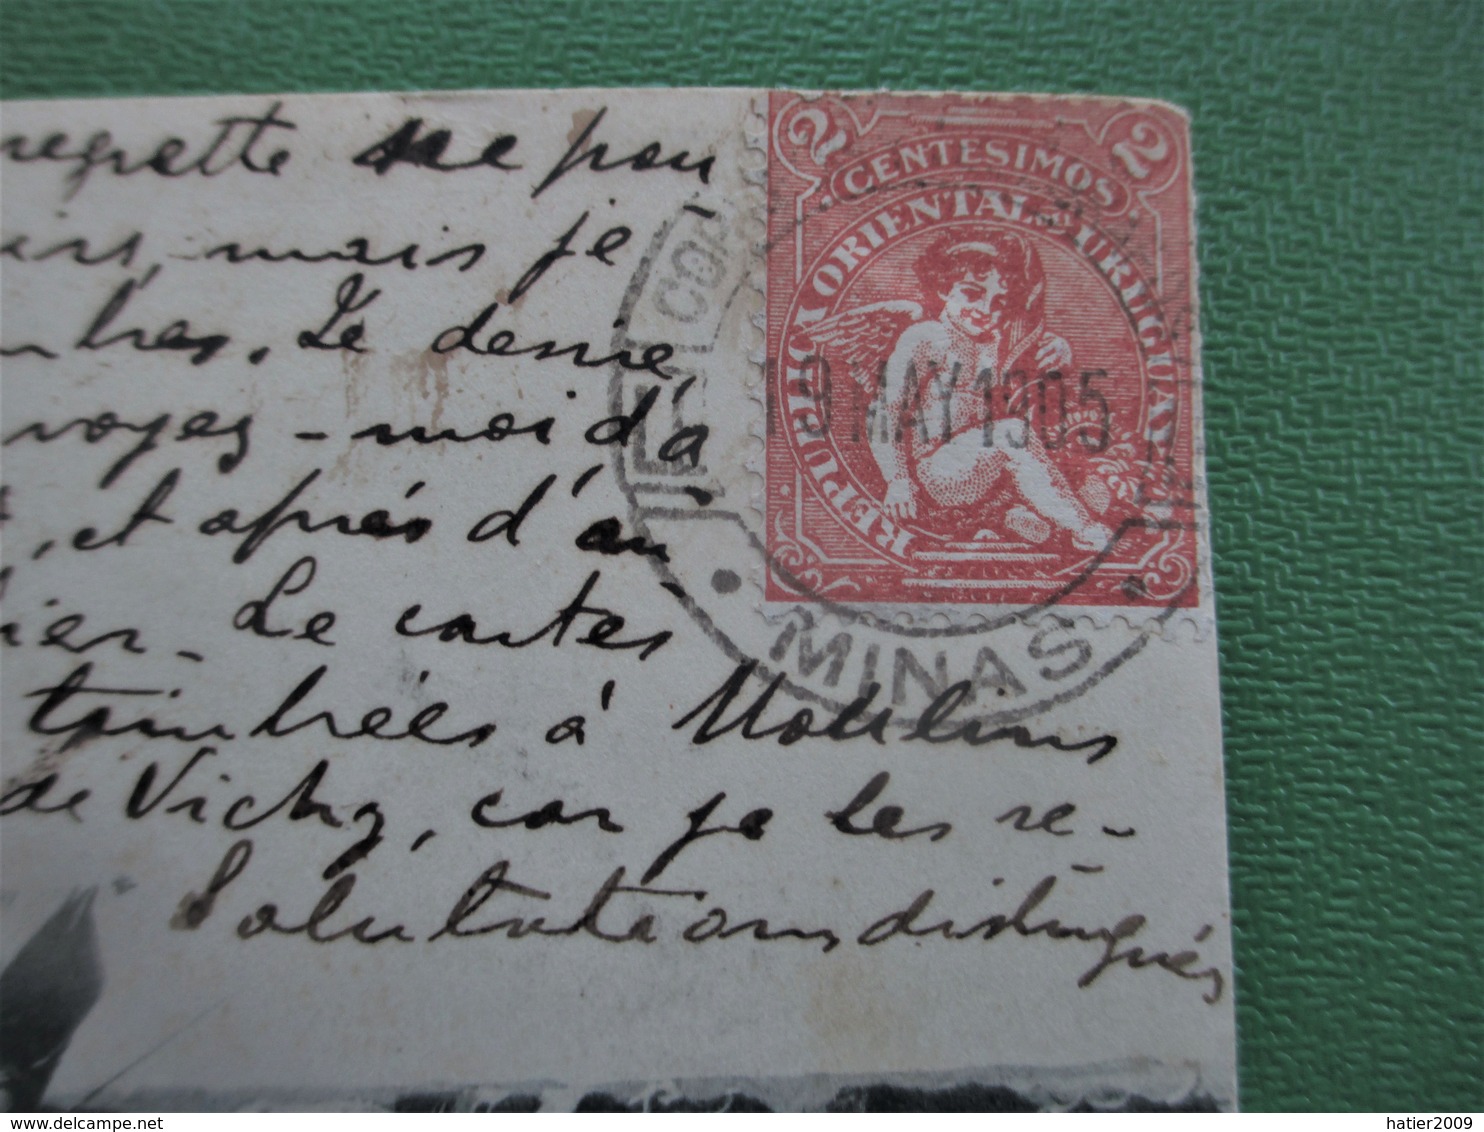 regrette ne pou
mais je
Le desire
voyez-moi d'a
, et aprés d'au
Le cartes
timbrées à Moulins
de Vichy, car je les re-
Salutations distingués
2 2
CENTESIMOS
REPUBLICA ORIENTAL DEL URUGUAY
19 MAY 1905
MINAS
delcampe.net
hatier2009